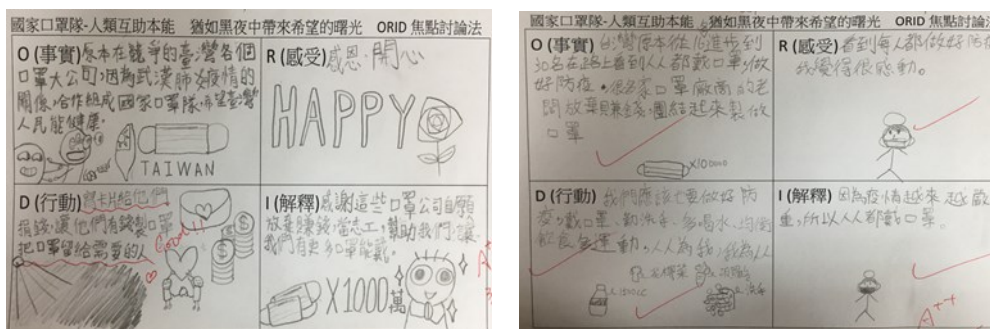 國家口罩隊-人類互助本能 猶如黑夜中帶來希望的曙光 ORID 焦點討論法
O (事實) 原本在競爭的臺灣各個
口罩大公司,因為武漢肺炎疫情的
關係,合作組成國家口罩隊,希望臺灣
人民能健康。
TAIWAN
R (感受) 感恩、開心
HAPPY
D (行動) 寫卡片給他們
捐錢,讓他們有錢製口罩
把口罩留給需要的人
Good!!
I (解釋) 感謝這些口罩公司自願
放棄賺錢,當志工,幫助我們,讓
我們有更多口罩能戴。
X1000萬
國家口罩隊-人類互助本能 猶如黑夜中帶來希望的曙光 ORID 焦點討論法
O (事實) 台灣原本從 進步到
名在路上看到人人都戴口罩,做
好防疫。很多家口罩廠商的老
闆放棄賺錢,團結起來製做
口罩
R (感受) 看到每人都做好防疫
我覺得很感動。
D (行動) 我們應該也要做好防
疫,戴口罩、勤洗手、多喝水、均衡
飲食、運動。人人為我,我為人人
I (解釋) 因為疫情越來越嚴
重,所以人人都戴口罩。
A++